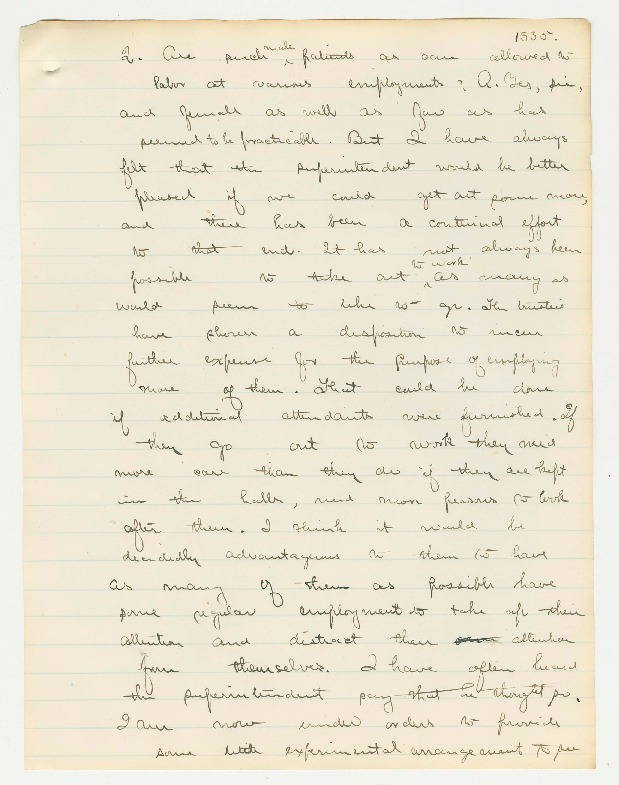 1335.
Q. Are such male patients as can allowed to
labor at various employments? A. Yes, sir,
and female as well as far as has
seemed to be practicable. But I have always
felt that the superintendent would be better
pleased if we could get out some more,
and there has been a continual effort
to that end. It has not always been
possible to take out to work as many as
would seem to like to go. The trustees
have shown a disposition to incur
further expense for the purpose of employing
more of them. That could be done
if additional attendants were furnished. If
they go out to work they need
more care than they do if they are kept
in the halls, need more persons to look
after them. I think it would be
decidedly advantageous to them to have
as many of them as possible have
some regular employment to take up their
attention and distract their attention
from themselves. I have often heard
the superintendent say that he thought so.
I am now under orders to provide
some little experimental arrangement to see